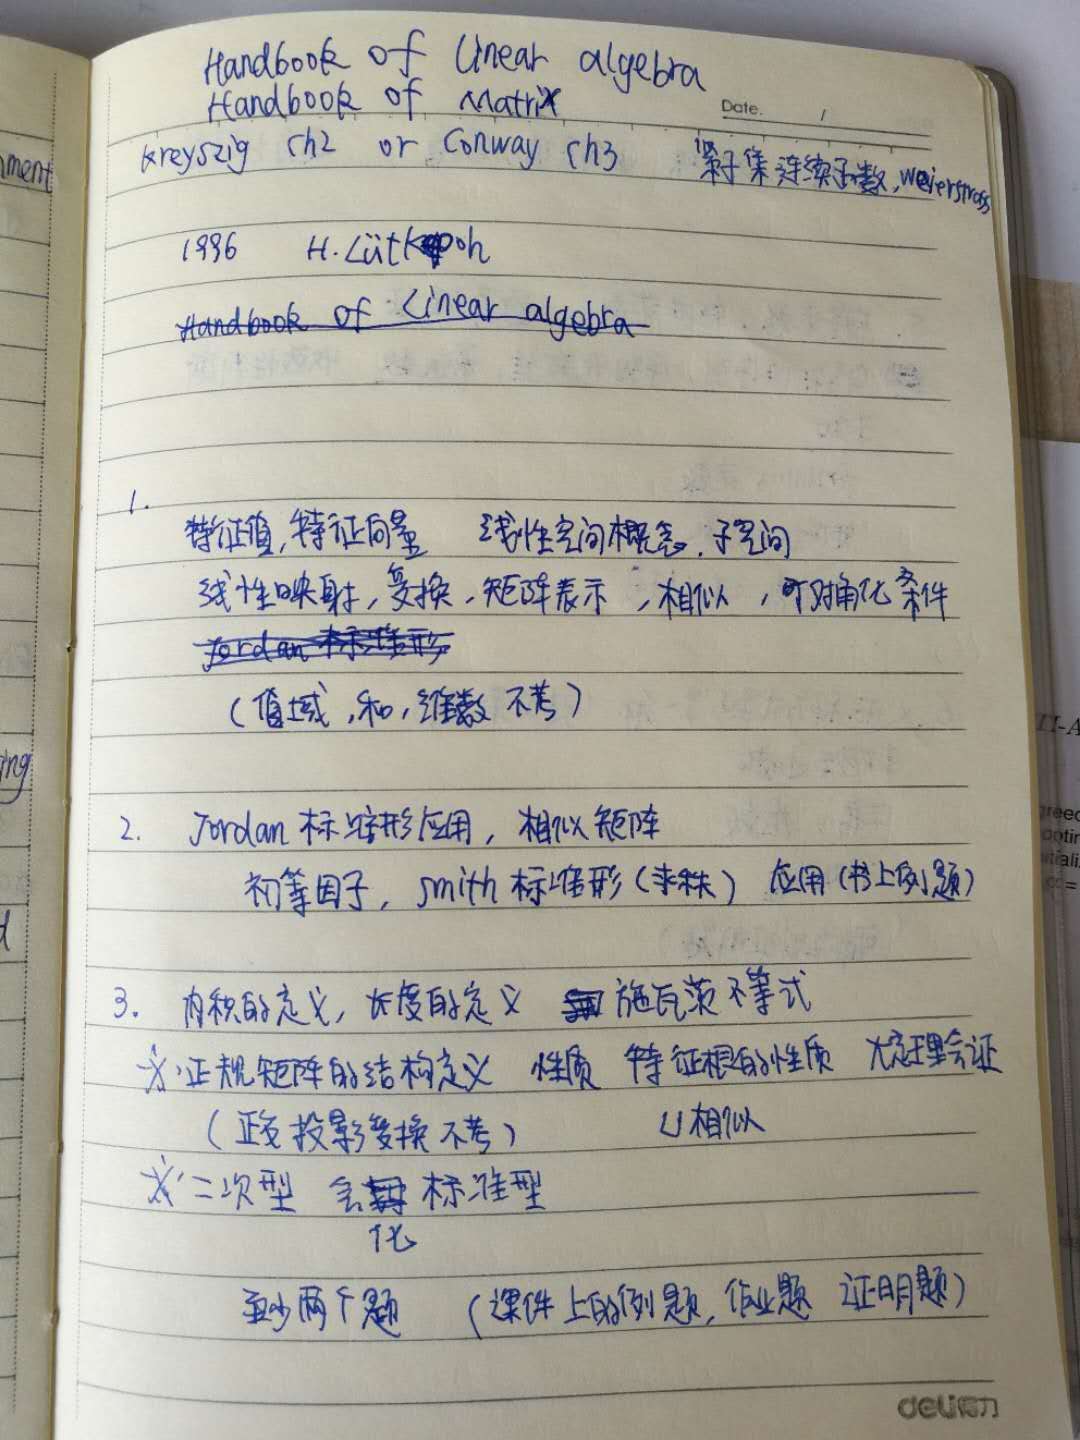 Handbook of Linear algebra
Handbook of Matrix
Date. /
Kreyszig ch2 or Conway ch3 紧子集连续函数, Weierstrass
1996 H. Lütkepoh
Handbook of Linear algebra
1.
特征值, 特征向量 线性空间概念, 子空间
线性映射, 变换, 矩阵表示, 相似, 可对角化条件
Jordan 标准形
(值域, 和, 维数不考)
2. Jordan 标准形应用, 相似矩阵
初等因子, Smith 标准形(求秩) 应用(书上例题)
3. 内积的定义, 长度的定义 施瓦茨不等式
正规矩阵的结构定义 性质 特征根的性质 大定理会证
(正交投影变换不考) U相似
二次型 会 标准型
化
至少两个题 (课件上的例题, 作业题 证明题)
deli得力
nment
ing
d
TI-A
greed